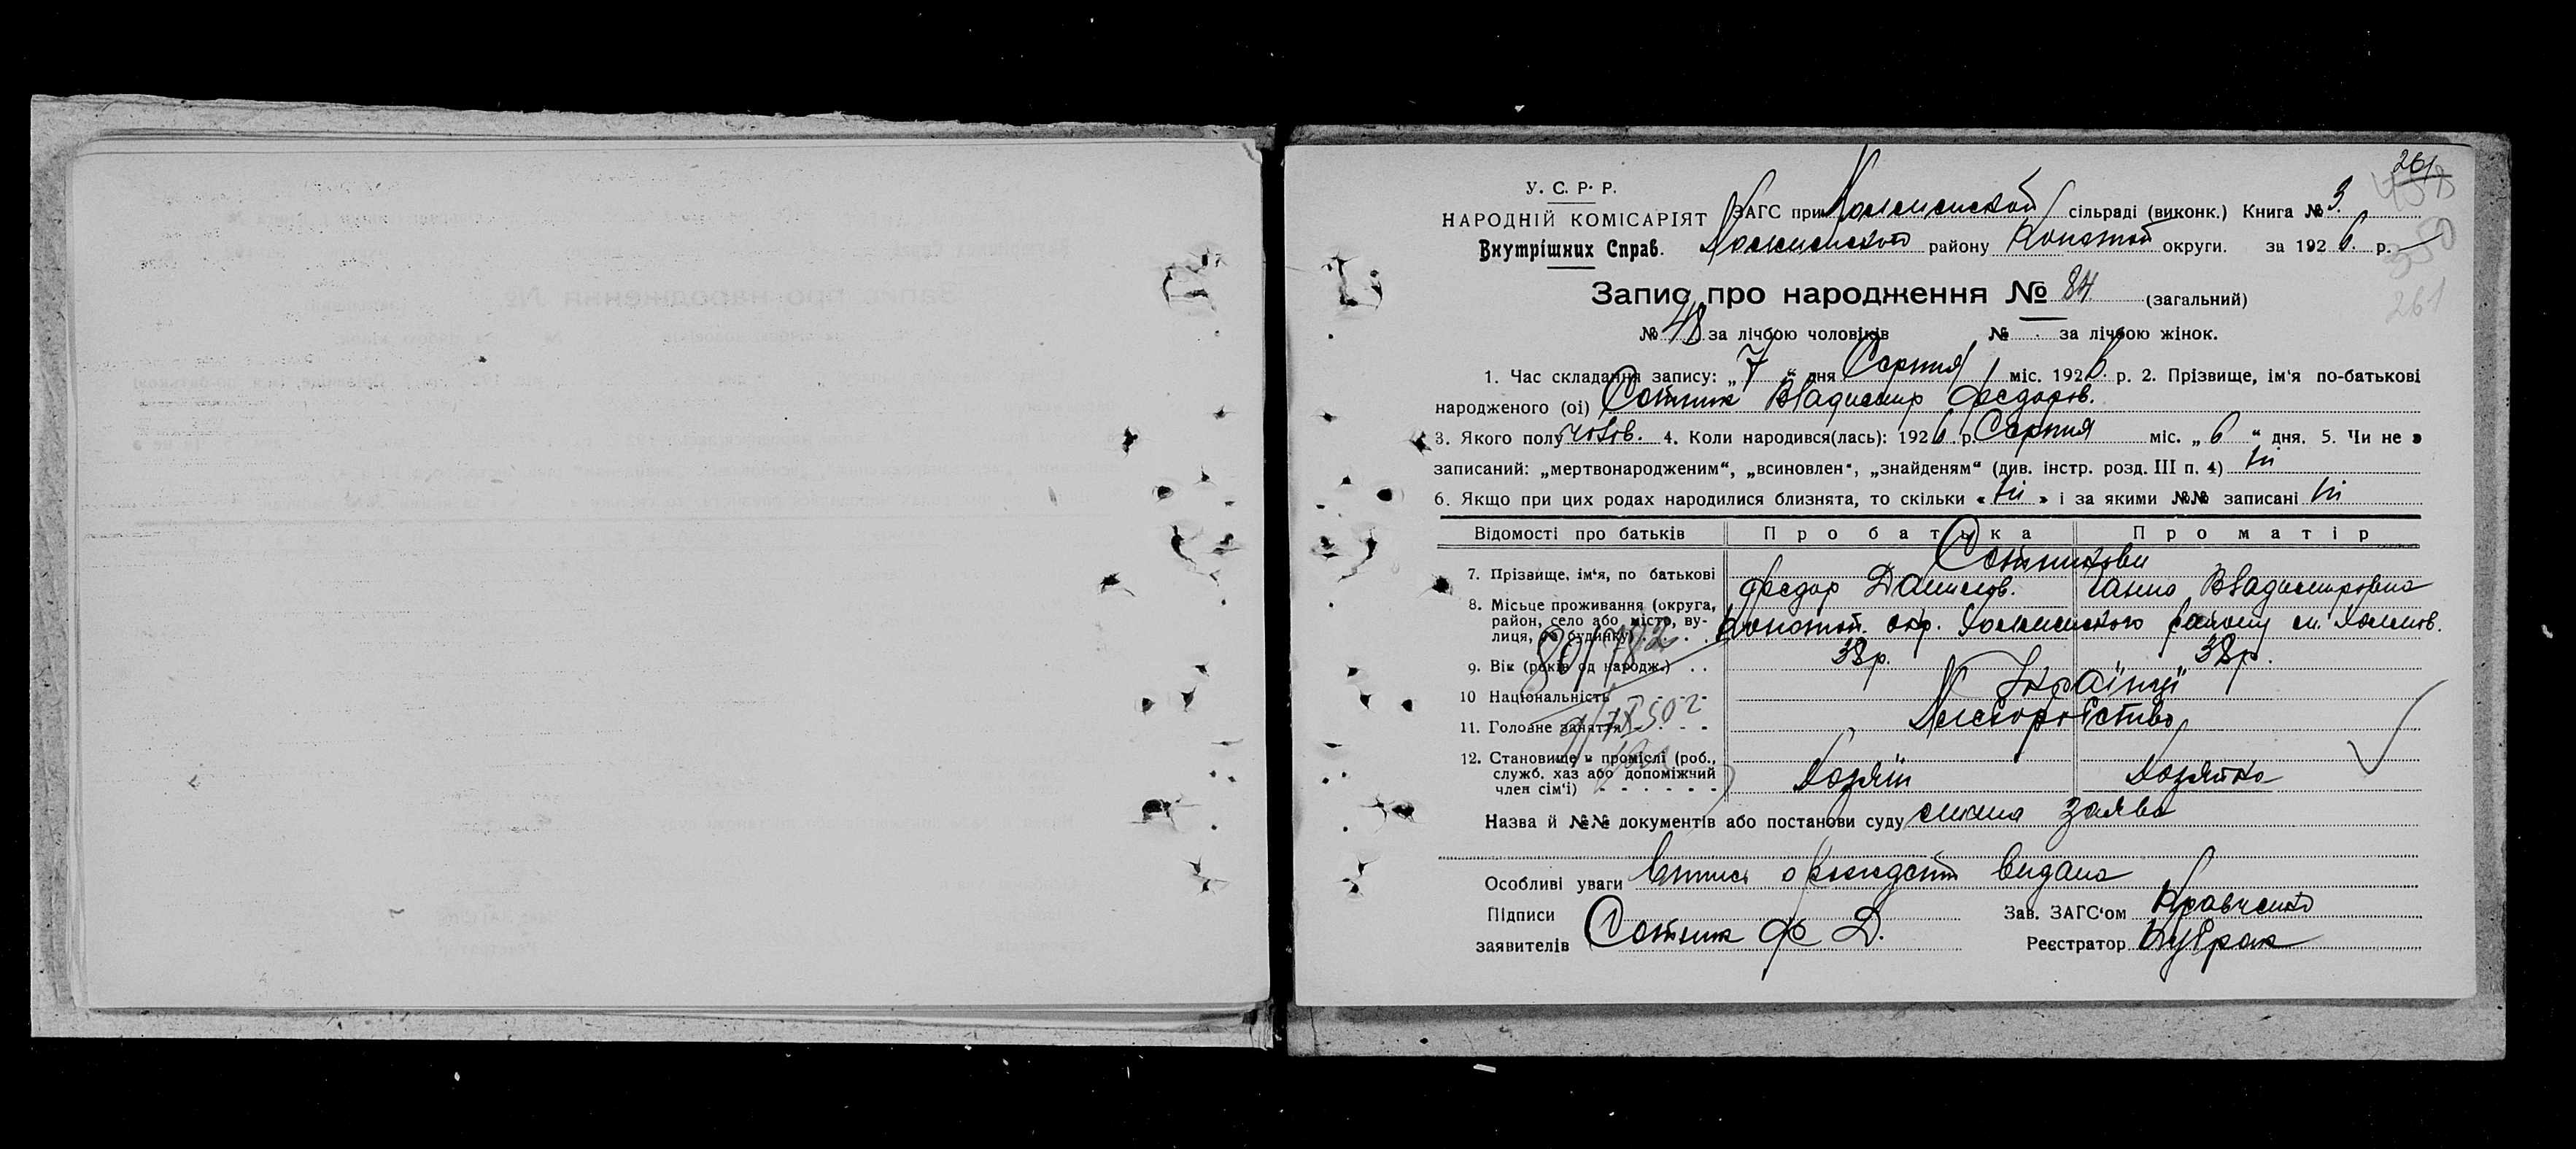 261
У. С. Р. Р.
НАРОДНІЙ КОМІСАРІЯТ
Внутрішних Справ.
ЗАГС при Холминской сільраді (виконк.) Книга № 3.
Холминской району Конотоп округи. за 1926. р.
350
261
Запис про народження № 84 (загальний)
№ 48 за лічбою чоловіків № за лічбою жінок.
1. Час складання запису: „7“ дня Серпня міс. 1926. р. 2. Прізвище, ім'я по-батькові
народженого (ої) Сотник Владимир Федоров.
3. Якого полу чолов. 4. Коли народився(лась): 1926 р. Серпня міс. „6“ дня. 5. Чи не є
записаний: „мертвонародженим“, „всиновлен“, „знайденям“ (див. інстр. розд. III п. 4) ні
6. Якщо при цих родах народилися близнята, то скільки « ні » і за якими №№ записані ні
Відомості про батьків Про батька Про матір
7. Прізвище, ім'я, по батькові Сотникови
Федор Данилов. Ганна Владимировна
8. Місьце проживання (округа, район, село або місто, ву-
лиця, № будинку) Конотоп. окр. Холминского району м. Холмов.
9. Вік (років од народж.) 38р. 38р.
10 Національність Українці
11. Головне заняття
12. Становище в проміслі (роб.,
служб. хаз або допоміжний
член сім'ї) Хозяїн Хозяйка
Назва й №№ документів або постанови суду слична заява
Особливі уваги Випись о рождении видана
Підписи
заявителів Сотник Ф Д.
Зав. ЗАГС'ом Кравченко
Реєстратор Кубрак